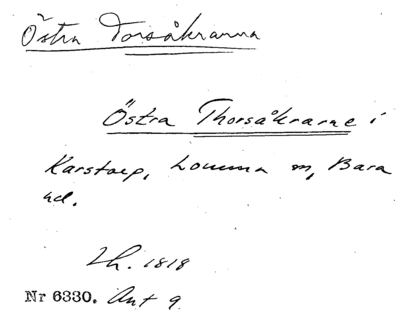 Östra Torsåkrarna
Östra Thorsåkrarne i
Karstorp, Lomma sn, Bara
hd.
Lh. 1818
Nr 6330. Akt 9